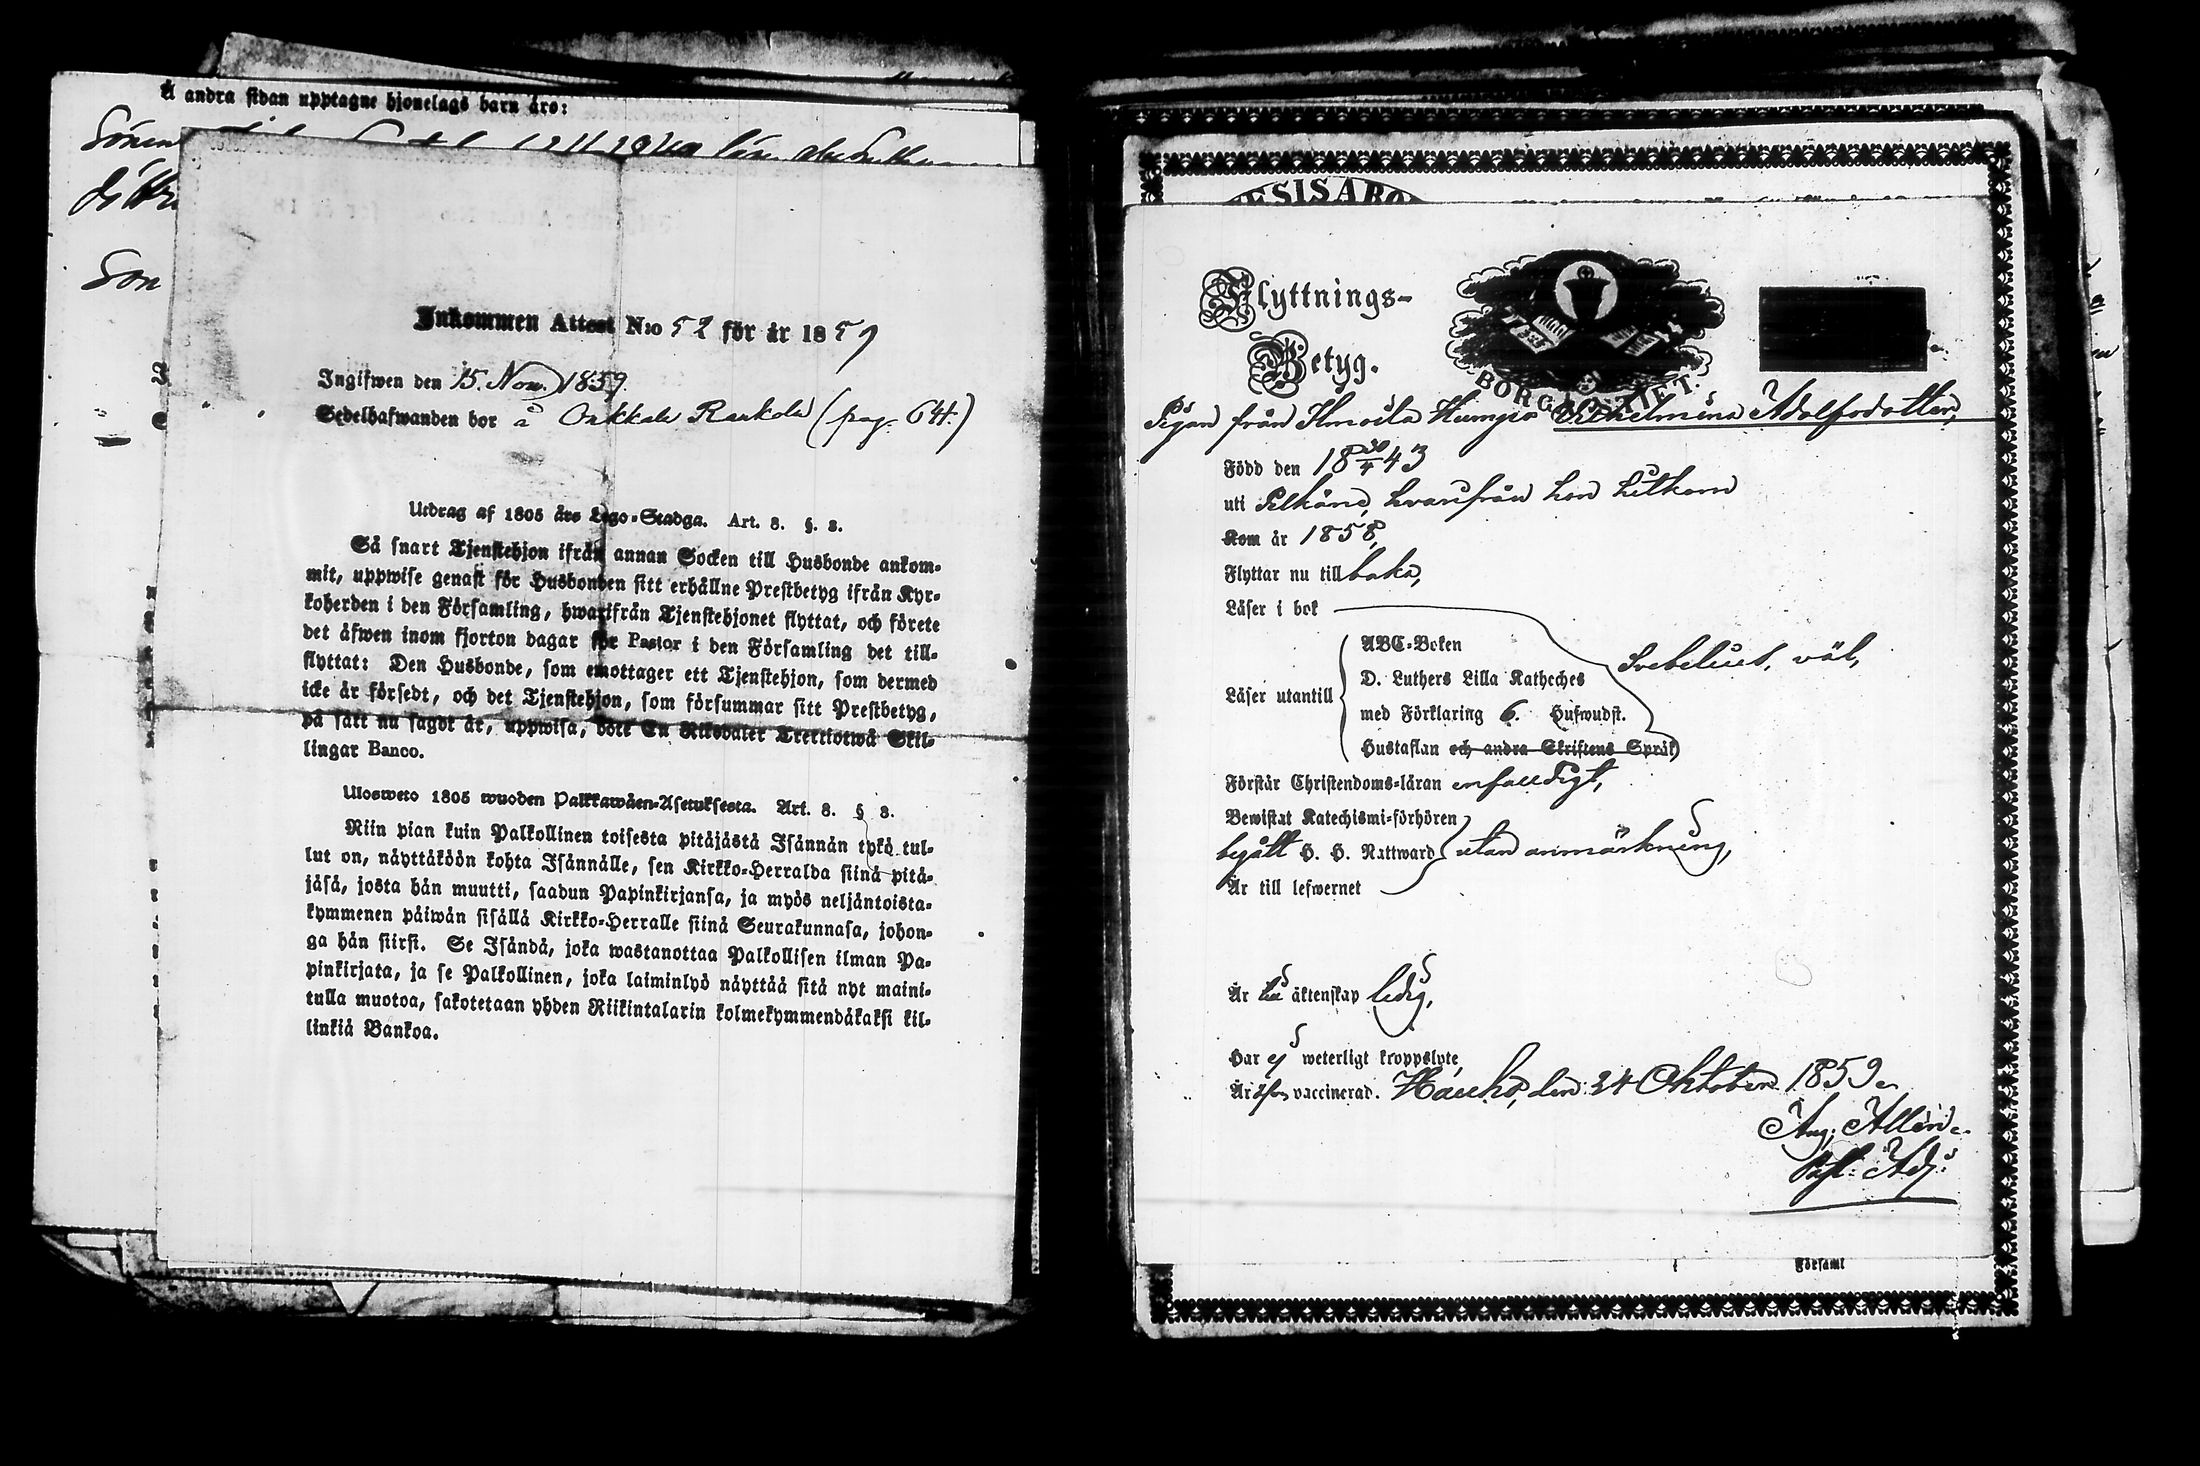 Å andra sidan upptagne hjonelags barn äro:
Sönern
dittr
Son
Inkommen Attest N:o 52 för år 1859
Ingifwen den 15. Nov. 1859.
Sedelhafwanden bor å Onkkala Raukola (pag. 644.)
Utdrag af 1805 års Lego-Stadga. Art. 8. §. 8.
Så snart Tjenstehjon ifrån annan Socken till Husbonde ankom-
mit, uppwise genast för Husbonden sitt erhållne Prestbetyg ifrån Kyr-
koherden i den Församling, hwarifrån Tjenstehjonet flyttat, och förete
det äfwen inom fjorton dagar för Pastor i den Församling det till-
flyttat: Den Husbonde, som emottager ett Tjenstehjon, som dermed
icke är försedt, och det Tjenstehjon, som försummar sitt Prestbetyg,
på sätt nu sagdt är, uppwisa, böte En Riksdaler Trettiotwå Skil-
lingar Banco.
Ulosweto 1805 wuoden Palkkawäen-Asetuksesta. Art. 8. § 8.
Niin pian kuin Palkollinen toisesta pitäjästä Isännän tykö tul-
lut on, näyttäköön kohta Isännälle, sen Kirkko-Herralda siinä pitä-
jäsä, josta hän muutti, saadun Papinkirjansa, ja myös neljäntoista-
kymmenen päiwän sisällä Kirkko-Herralle siinä Seurakunnasa, johon-
ga hän siirsi. Se Isändä, joka wastanottaa Palkollisen ilman Pa-
pinkirjata, ja se Palkollinen, joka laiminlyö näyttää sitä nyt maini-
tulla muotoa, sakotetaan yhden Riikintalarin kolmekymmendäkaksi kil-
linkiä Bankoa.
ESISABO
Flyttnings-
Betyg.
BORGÅ STIFT.
Pigan från Ilmoila Humpio Wilhelmina Adolfsdotter,
Född den 18 30/4 43
uti Pelkäne, hvarifrån hon hitkom
Kom år 1858,
Flyttar nu tillbaka,
Läser i bok
ABC-Boken
Läser utantill
D. Luthers Lilla Katheches
Svebelius, väl,
med Förklaring 6. Hufwudst.
Hustaflan och andra Skriftens Språk
Förstår Christendoms-läran enfaldigt,
Bewistat Katechismi-förhören
begått H. H. Nattward utan anmärkning,
Är till lefwernet
Är till äktenskap ledig,
Har ej weterligt kroppslyte,
Är vaccinerad. Hauho, den 24 Oktober 1859.
Aug. Allén.
Adj.
Församl